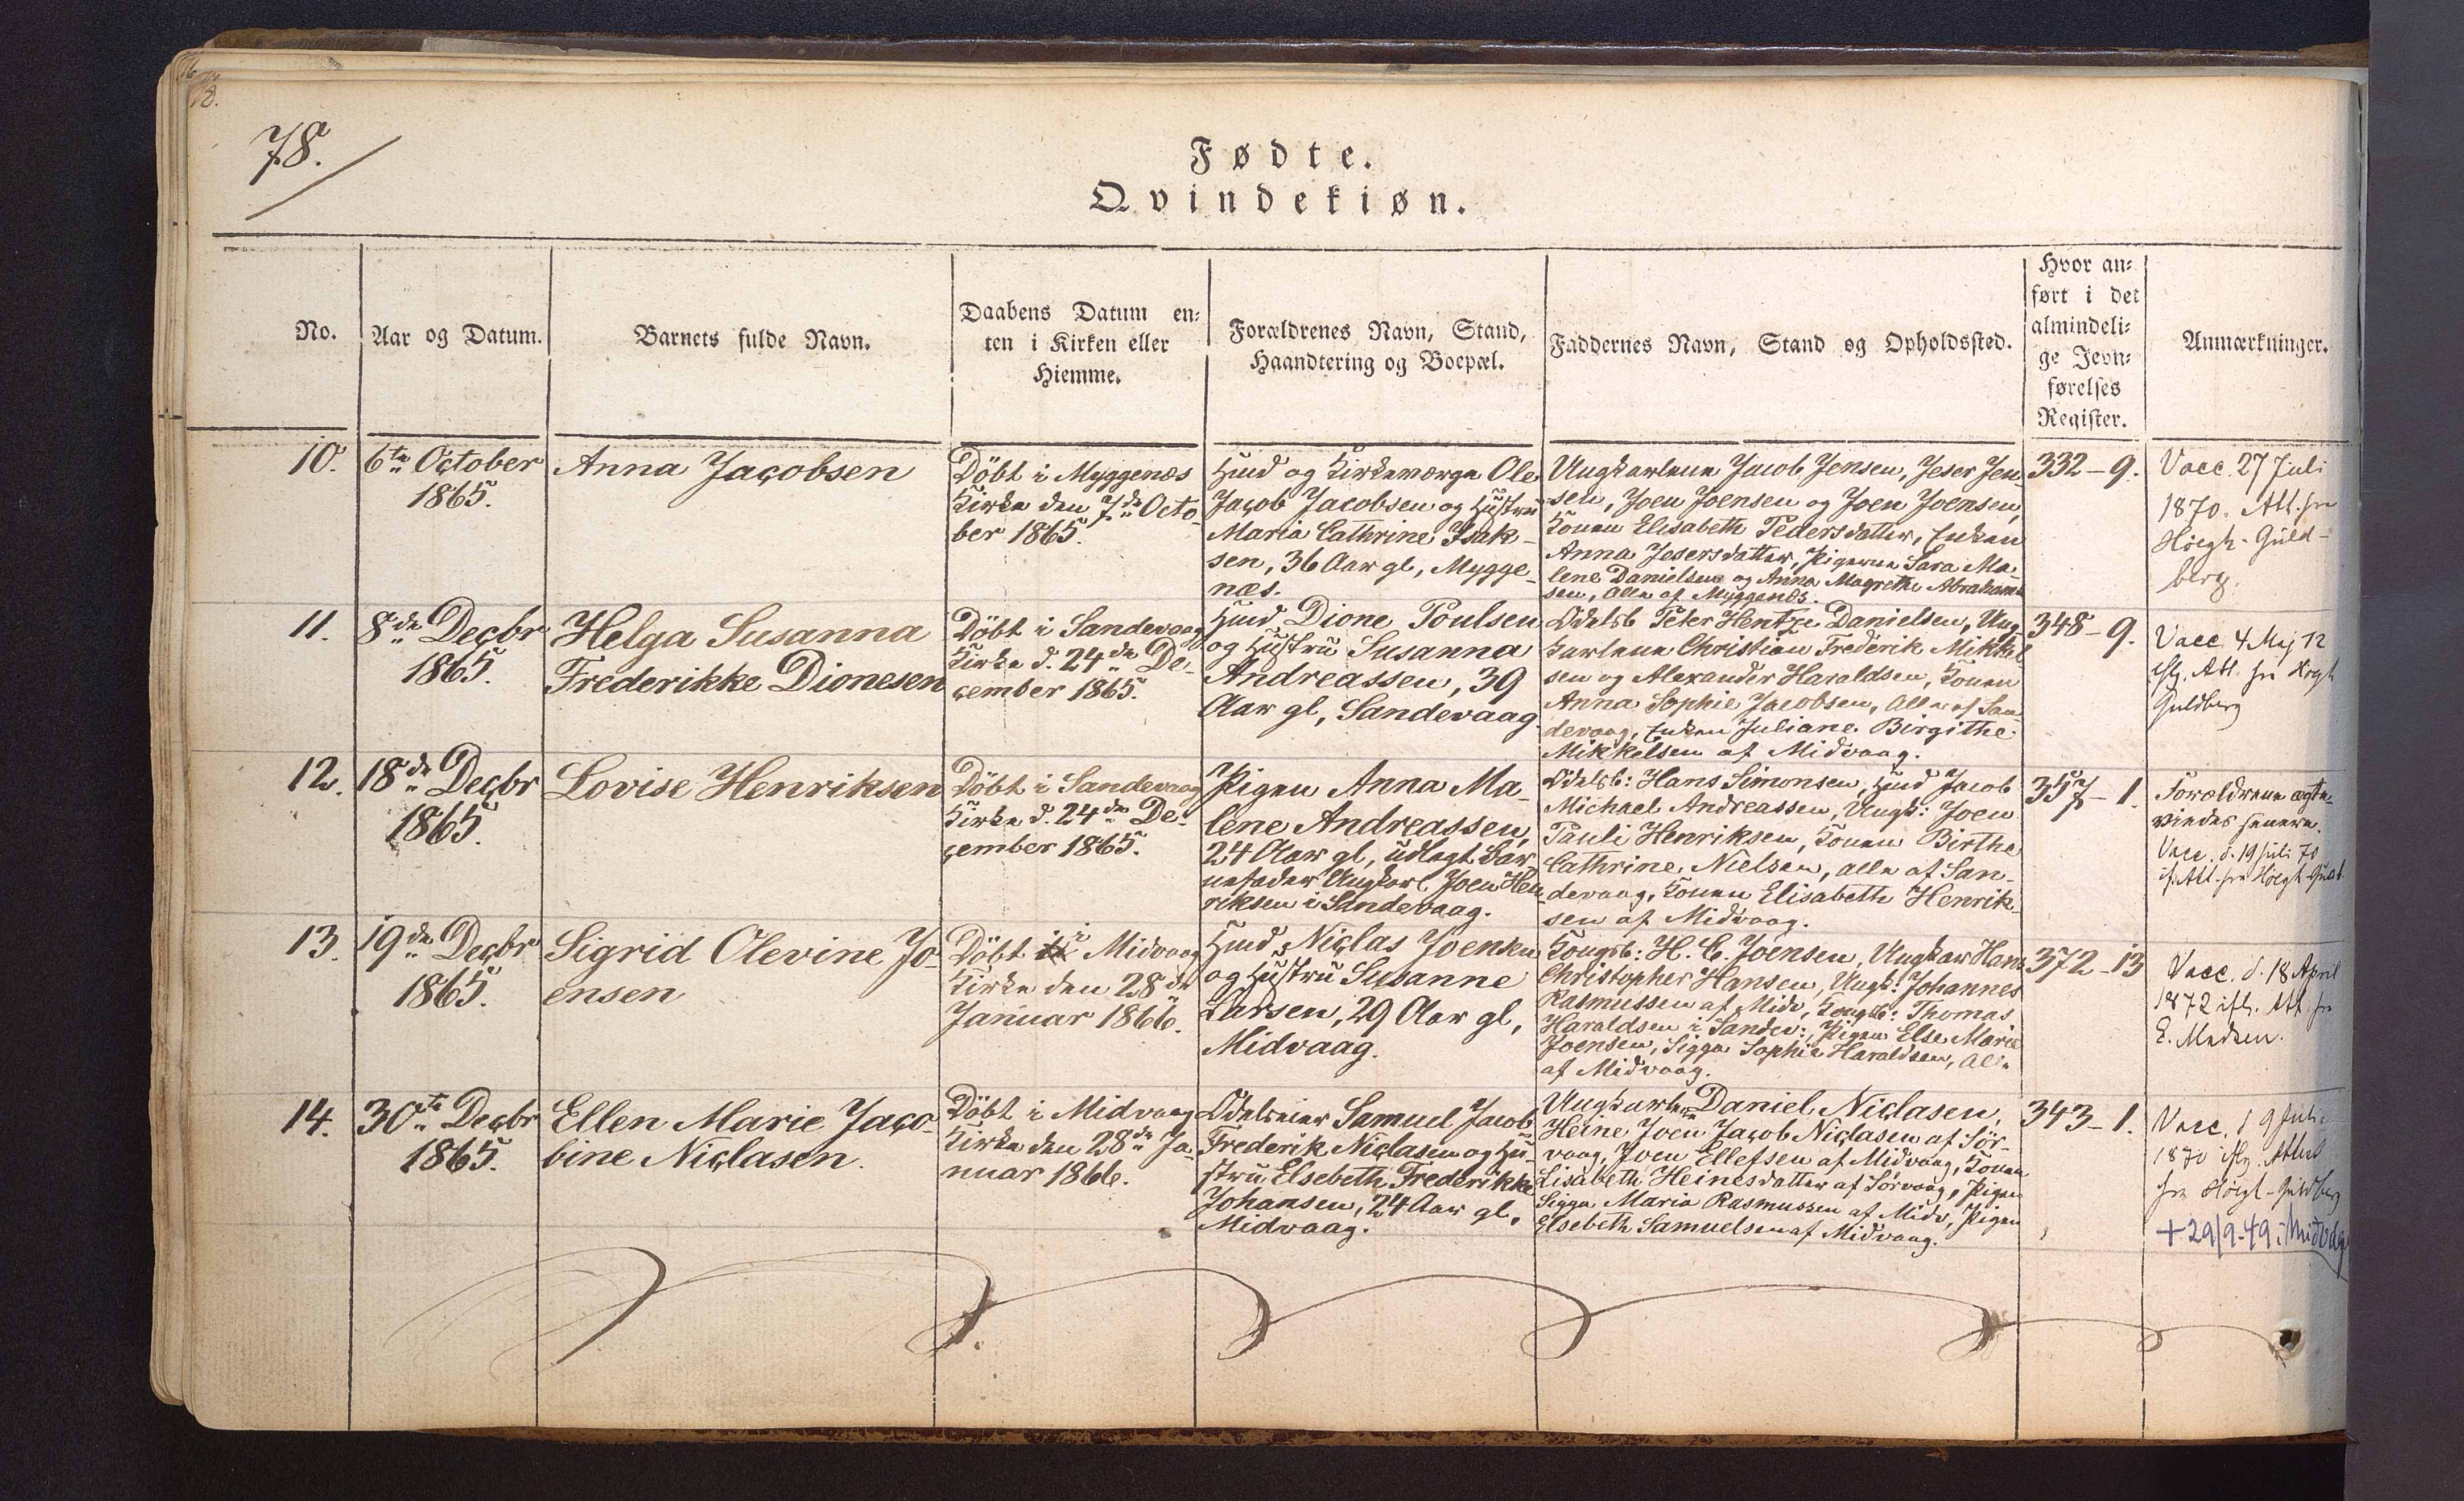 78.
Fødte.
Qvindekiøn.
No.
Aar og Datum.
Barnets fulde Navn.
Daabens Datum en-
ten i Kirken eller
Hiemme.
Forældrenes Navn, Stand,
Haandtering og Boepæl.
Faddernes Navn, Stand og Opholdssted.
Hvor an-
ført i det
almindeli-
ge Jevn-
førelses
Register.
Anmærkninger.
10.
6te October
1865.
Anna Jacobsen
Döbt i Myggenæs
Kirke den 7de Octo-
ber 1865.
Hmd og Kirkeværge Ole
Jacob Jacobsen og Hustru
Maria Cathrine Isak-
sen, 36 Aar gl, Mygge-
næs.
Ungkarlene Jacob Jensen, Jeser Jen
sen, Joen Joensen og Joen Joensen,
Konen Elisabeth Pedersdatter, Enken
Anna Jesersdatter, Pigerne Sara Ma-
lene Danielsen og Anna Magrethe Abraham
sen, Alle af Myggenæs.
332-9.
Vacc. 27 Juli
1870. Att. fra
Höegh-Guld-
berg.
11.
8de Decbr
1865.
Helga Susanna
Frederikke Dionesen
Döbt i Sandevaag
Kirke d. 24de De-
cember 1865.
Hmd Dione Poulsen
og Hustru Susanna
Andreassen, 39
Aar gl, Sandevaag
Odelsb Peter Hentze Danielsen, Ung-
karlene Christian Frederik Mikkel
sen og Alexander Haraldsen, Konen
Anna Sophie Jacobsen, Alle af San-
devaag, Enken Juliane Birgithe
Mikkelsen af Midvaag.
348-9.
Vacc. 4 Maj 72
iflg. Att. fra Högh
Guldberg
12.
18de Decbr
1865.
Lovise Henriksen
Döbt i Sandevaag
Kirke d. 24de De-
cember 1865.
Pigen Anna Ma-
lene Andreassen,
24 Aar gl, udlagt Bar-
nefader Ungkarl Joen Hen
riksen i Sandevaag.
Odelsb: Hans Simonsen, Hmd Jacob
Michael Andreassen, Ungk: Joen
Pauli Henriksen, Konen Birthe
Cathrine Nielsen, alle af San-
devaag, Konen Elisabeth Henrik-
sen af Midvaag.
357-1.
Forældrene ægte-
viedes senere.
Vacc. d. 19 Juli 70
if. Att. fra Höegh-Guld
13.
19de Decbr
1865.
Sigrid Olevine Jo-
ensen
Döbt i Midvaag
Kirke den 28de
Januar 1866.
Hmd Niclas Joensen
og Hustru Susanne
Larsen, 29 Aar gl,
Midvaag.
Kongsb: H. C. Joensen, Ungkar Hans
Christopher Hansen, Ungk: Johannes
Rasmussen af Midv, Kongsb: Thomas
Haraldsen i Sandev:, Pigen Else Marie
Joensen, Sigga Sophie Haraldsen, Alle
af Midvaag.
372-13
Vacc. d. 18 April
1872 ifl. Att. fra
E. Madsen.
14.
30te Decbr
1865.
Ellen Marie Jaco-
bine Niclasen.
Döbt i Midvaag
Kirke den 28de Ja-
nuar 1866.
Odelseier Samuel Jacob
Frederik Niclasen og Hu-
stru Elsebeth Frederikke
Johansen, 24 Aar gl,
Midvaag.
Ungkarlene Daniel Niclasen,
Heine Joen Jacob Niclasen af Sör-
vaag, Joen Ellefsen af Midvaag, Konen
Lisabeth Heinesdatter af Sörvaag, Pigen
Sigga Maria Rasmussen af Midv, Pigen
Elsebeth Samuelsen af Midvaag.
343-1.
Vacc. d 9 Juli
1870 iflg. Attest
fra Höegh-Guldberg
+ 29/9-49 i Midvåg